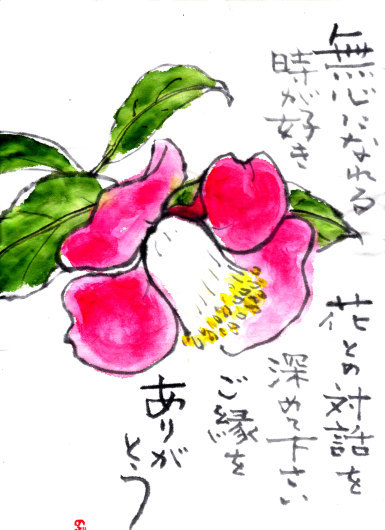 無心になれる
時が好き
花との対話を
深めて下さい
ご縁を
ありが
とう